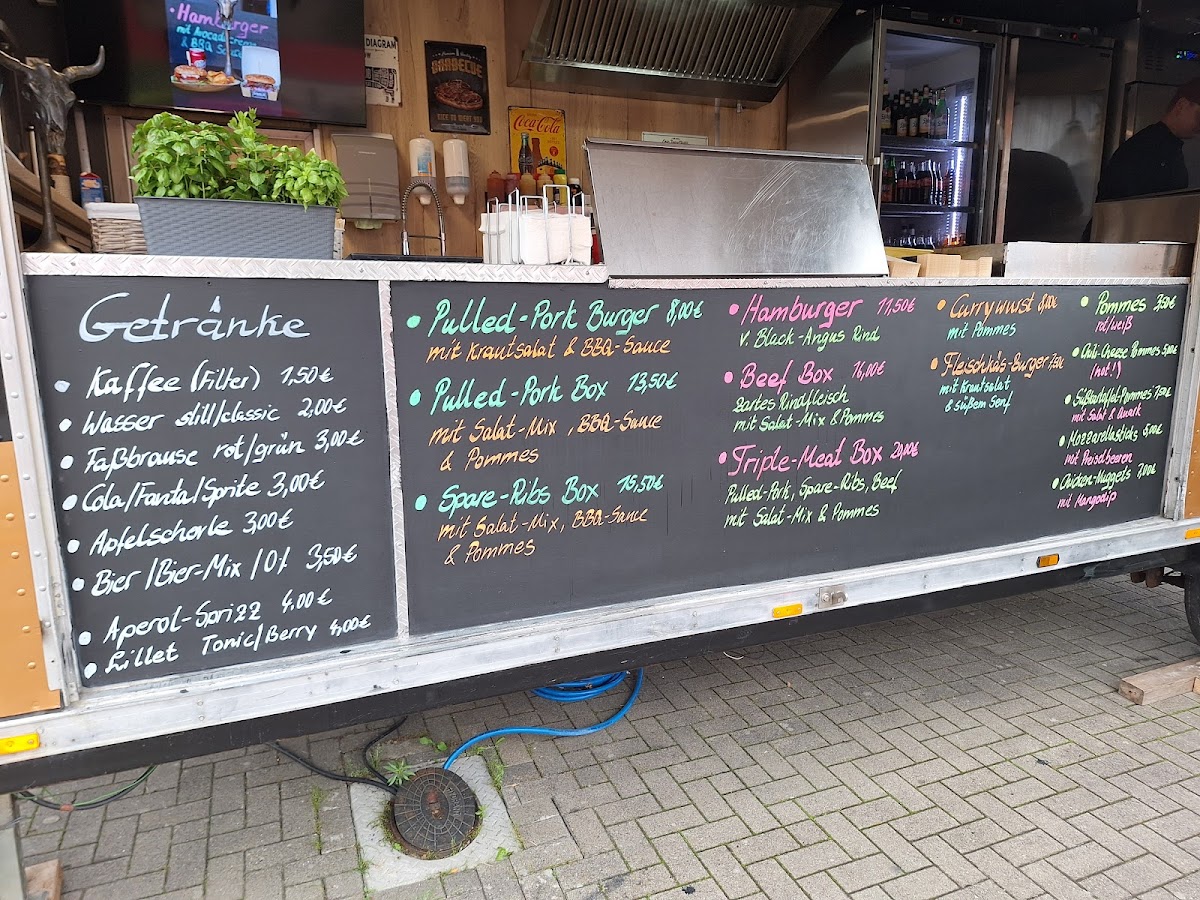 Hamburger
mit Avocadocreme
& BBQ Sauce
DIAGRAM
BARBECUE
NICE TO MEAT YOU
Coca-Cola
Getränke
Kaffee (Filter) 1,50€
Wasser still/classic 2,00€
Faßbrause rot/grün 3,00€
Cola/Fanta/Sprite 3,00€
Apfelschorle 3,00€
Bier/Bier-Mix/0% 3,50€
Aperol-Sprizz 4,00€
Lillet Tonic/Berry 4,00€
Pulled-Pork Burger 8,00€
mit Krautsalat & BBQ-Sauce
Pulled-Pork Box 13,50€
mit Salat-Mix, BBQ-Sauce
& Pommes
Spare-Ribs Box 15,50€
mit Salat-Mix, BBQ-Sauce
& Pommes
Hamburger 11,50€
v. Black-Angus Rind
Beef Box 16,00€
zartes Rindfleisch
mit Salat-Mix & Pommes
Triple-Meat Box 20,00€
Pulled-Pork, Spare-Ribs, Beef
mit Salat-Mix & Pommes
Currywurst 8,00€
mit Pommes
Fleischkäs-Burger 7,50€
mit Krautsalat
& süßem Senf
Pommes 3,50€
rot/weiß
Chili-Cheese Pommes 5,00€
(hot!)
Süßkartoffel-Pommes 7,50€
mit Salat & Quark
Mozzarellasticks 5,00€
mit Preiselbeeren
Chicken-Nuggets 7,00€
mit Mangodip